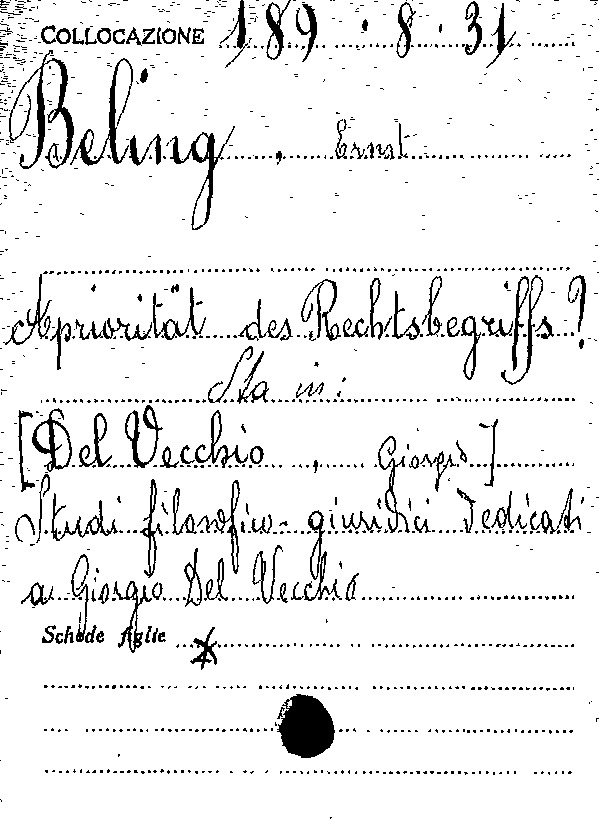 COLLOCAZIONE 189.8.31
Beling, Ernst
Apriorität des Rechtsbegriffs?
Sta in:
[Del Vecchio, Giorgio]
Studi filosofico-giuridici dedicati
a Giorgio Del Vecchio
Schede figlie *